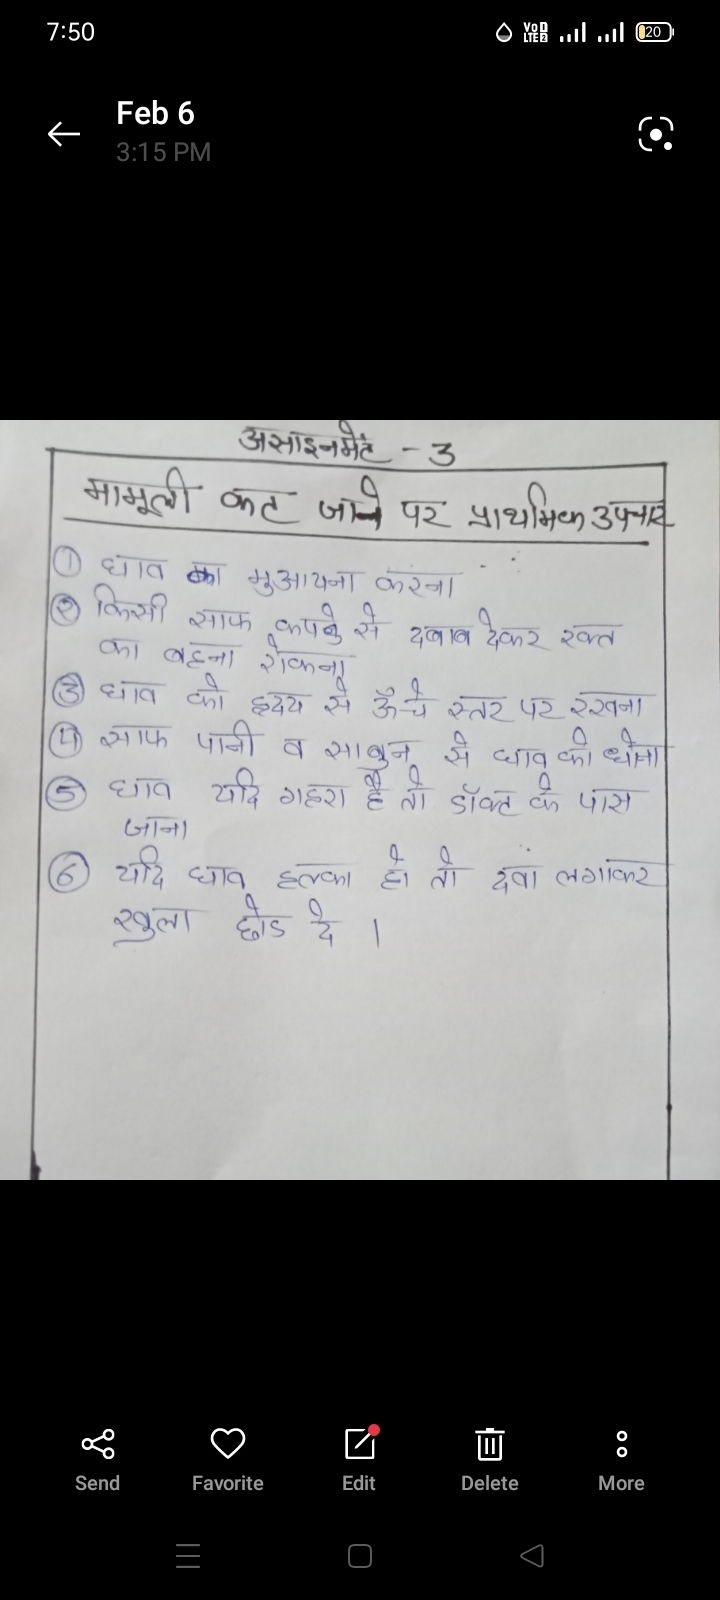 7:50
VoD LTE2 20
Feb 6
3:15 PM
असाइनमेंट - 3
मामूली कट जाने पर प्राथमिक उपचार
① घाव का मुआयना करना
② किसी साफ कपड़े से दबाब देकर रक्त
का बहना रोकना
③ घाव को हृदय से ऊँचे स्तर पर रखना
④ साफ पानी व साबुन से घाव को धोना
⑤ घाव यदि गहरा है तो डॉक्ट के पास
जाना
⑥ यदि घाव हल्का हो तो दवा लगाकर
खुला छोड दे ।
Send Favorite Edit Delete More